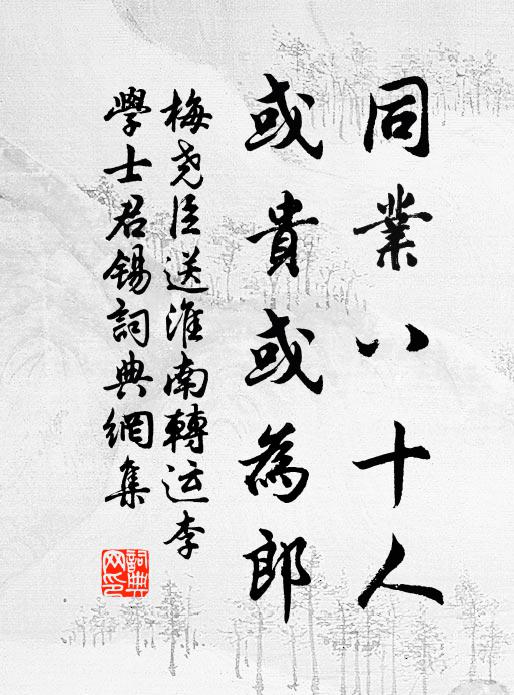 同業八十人
或貴或為郎
梅堯臣送淮南轉运李
學士君锡詞典網集
詞典网印